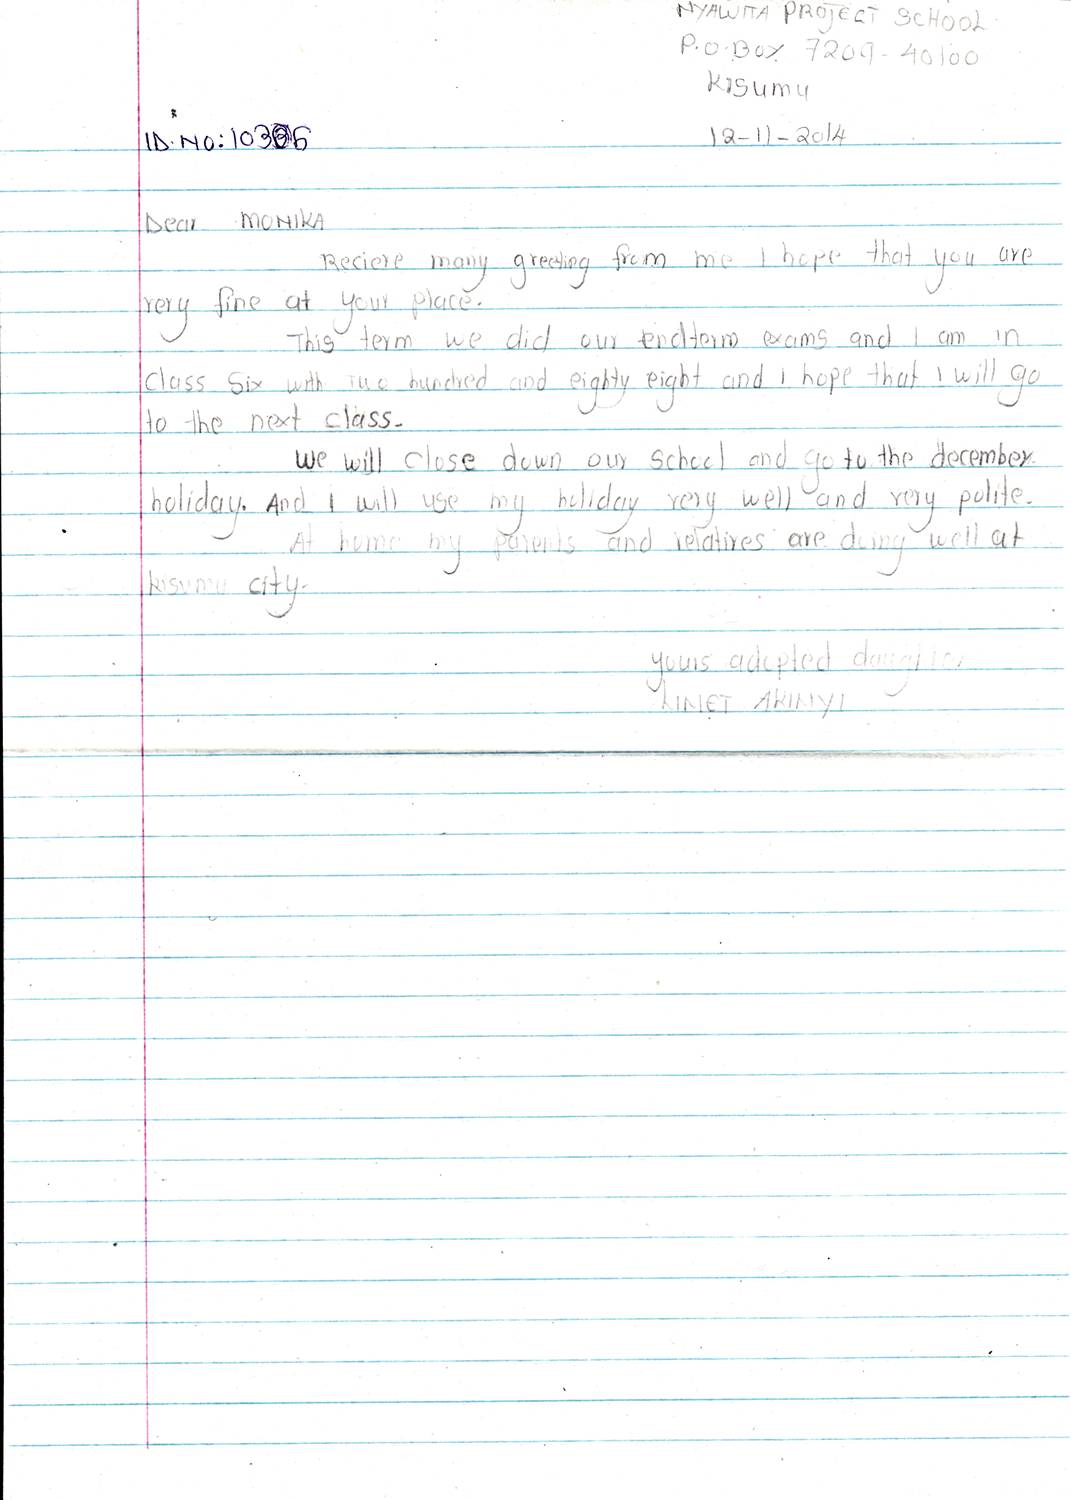 NYAWITA PROJECT SCHOOL
P.O.BOX 7209-40100
KISUMU
ID.NO:10336
12-11-2014
Dear MONIKA
Recieve many greeting from me I hope that you are
very fine at your place.
This term we did our endterm exams and I am in
class six with Two hundred and eighty eight and I hope that I will go
to the next class.
We will close down our school and go to the december
holiday. And I will use my holiday very well and very polite.
At home my parents and relatives are doing well at
kisumu city.
yours adopted daughter
LINET AKINYI